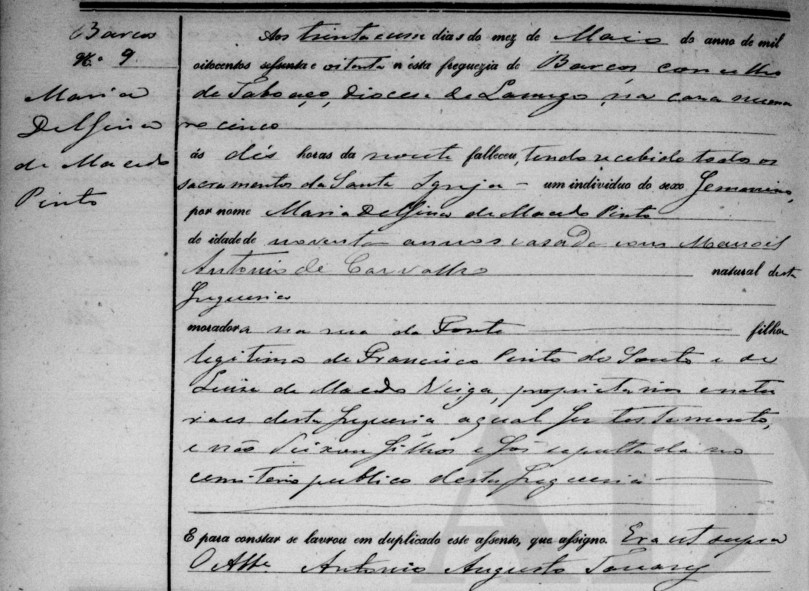 Barcos
Nº 9
Maria
Delfina
de Macedo
Pinto
Aos trinta e um dias do mez de Maio do anno de mil
oitocentos e oitenta n'esta freguezia de Barcos concelho
de Taboaço, diocese de Lamego, na casa numero
cinco
ás dés horas da noute falleceu, tendo recebido todos os
sacramentos da Santa Igreja - um individuo do sexo femenino,
por nome Maria Delfina de Macedo Pinto
de idade de noventa annos casada com Manoel
Antonio de Carvalho natural desta
freguesia
moradora na rua da Fonte filha
legitima de Francisco Pinto do Souto e de
Luisa de Macedo Veiga, proprietarios e natu
raes desta freguesia a qual fez testamento,
e não deixou filhos e foi sepultada no
cemiterio publico desta freguesia
E para constar se lavrou em duplicado este assento, que assigno. Era ut supra
O Abbe Antonio Augusto Tavares
AD